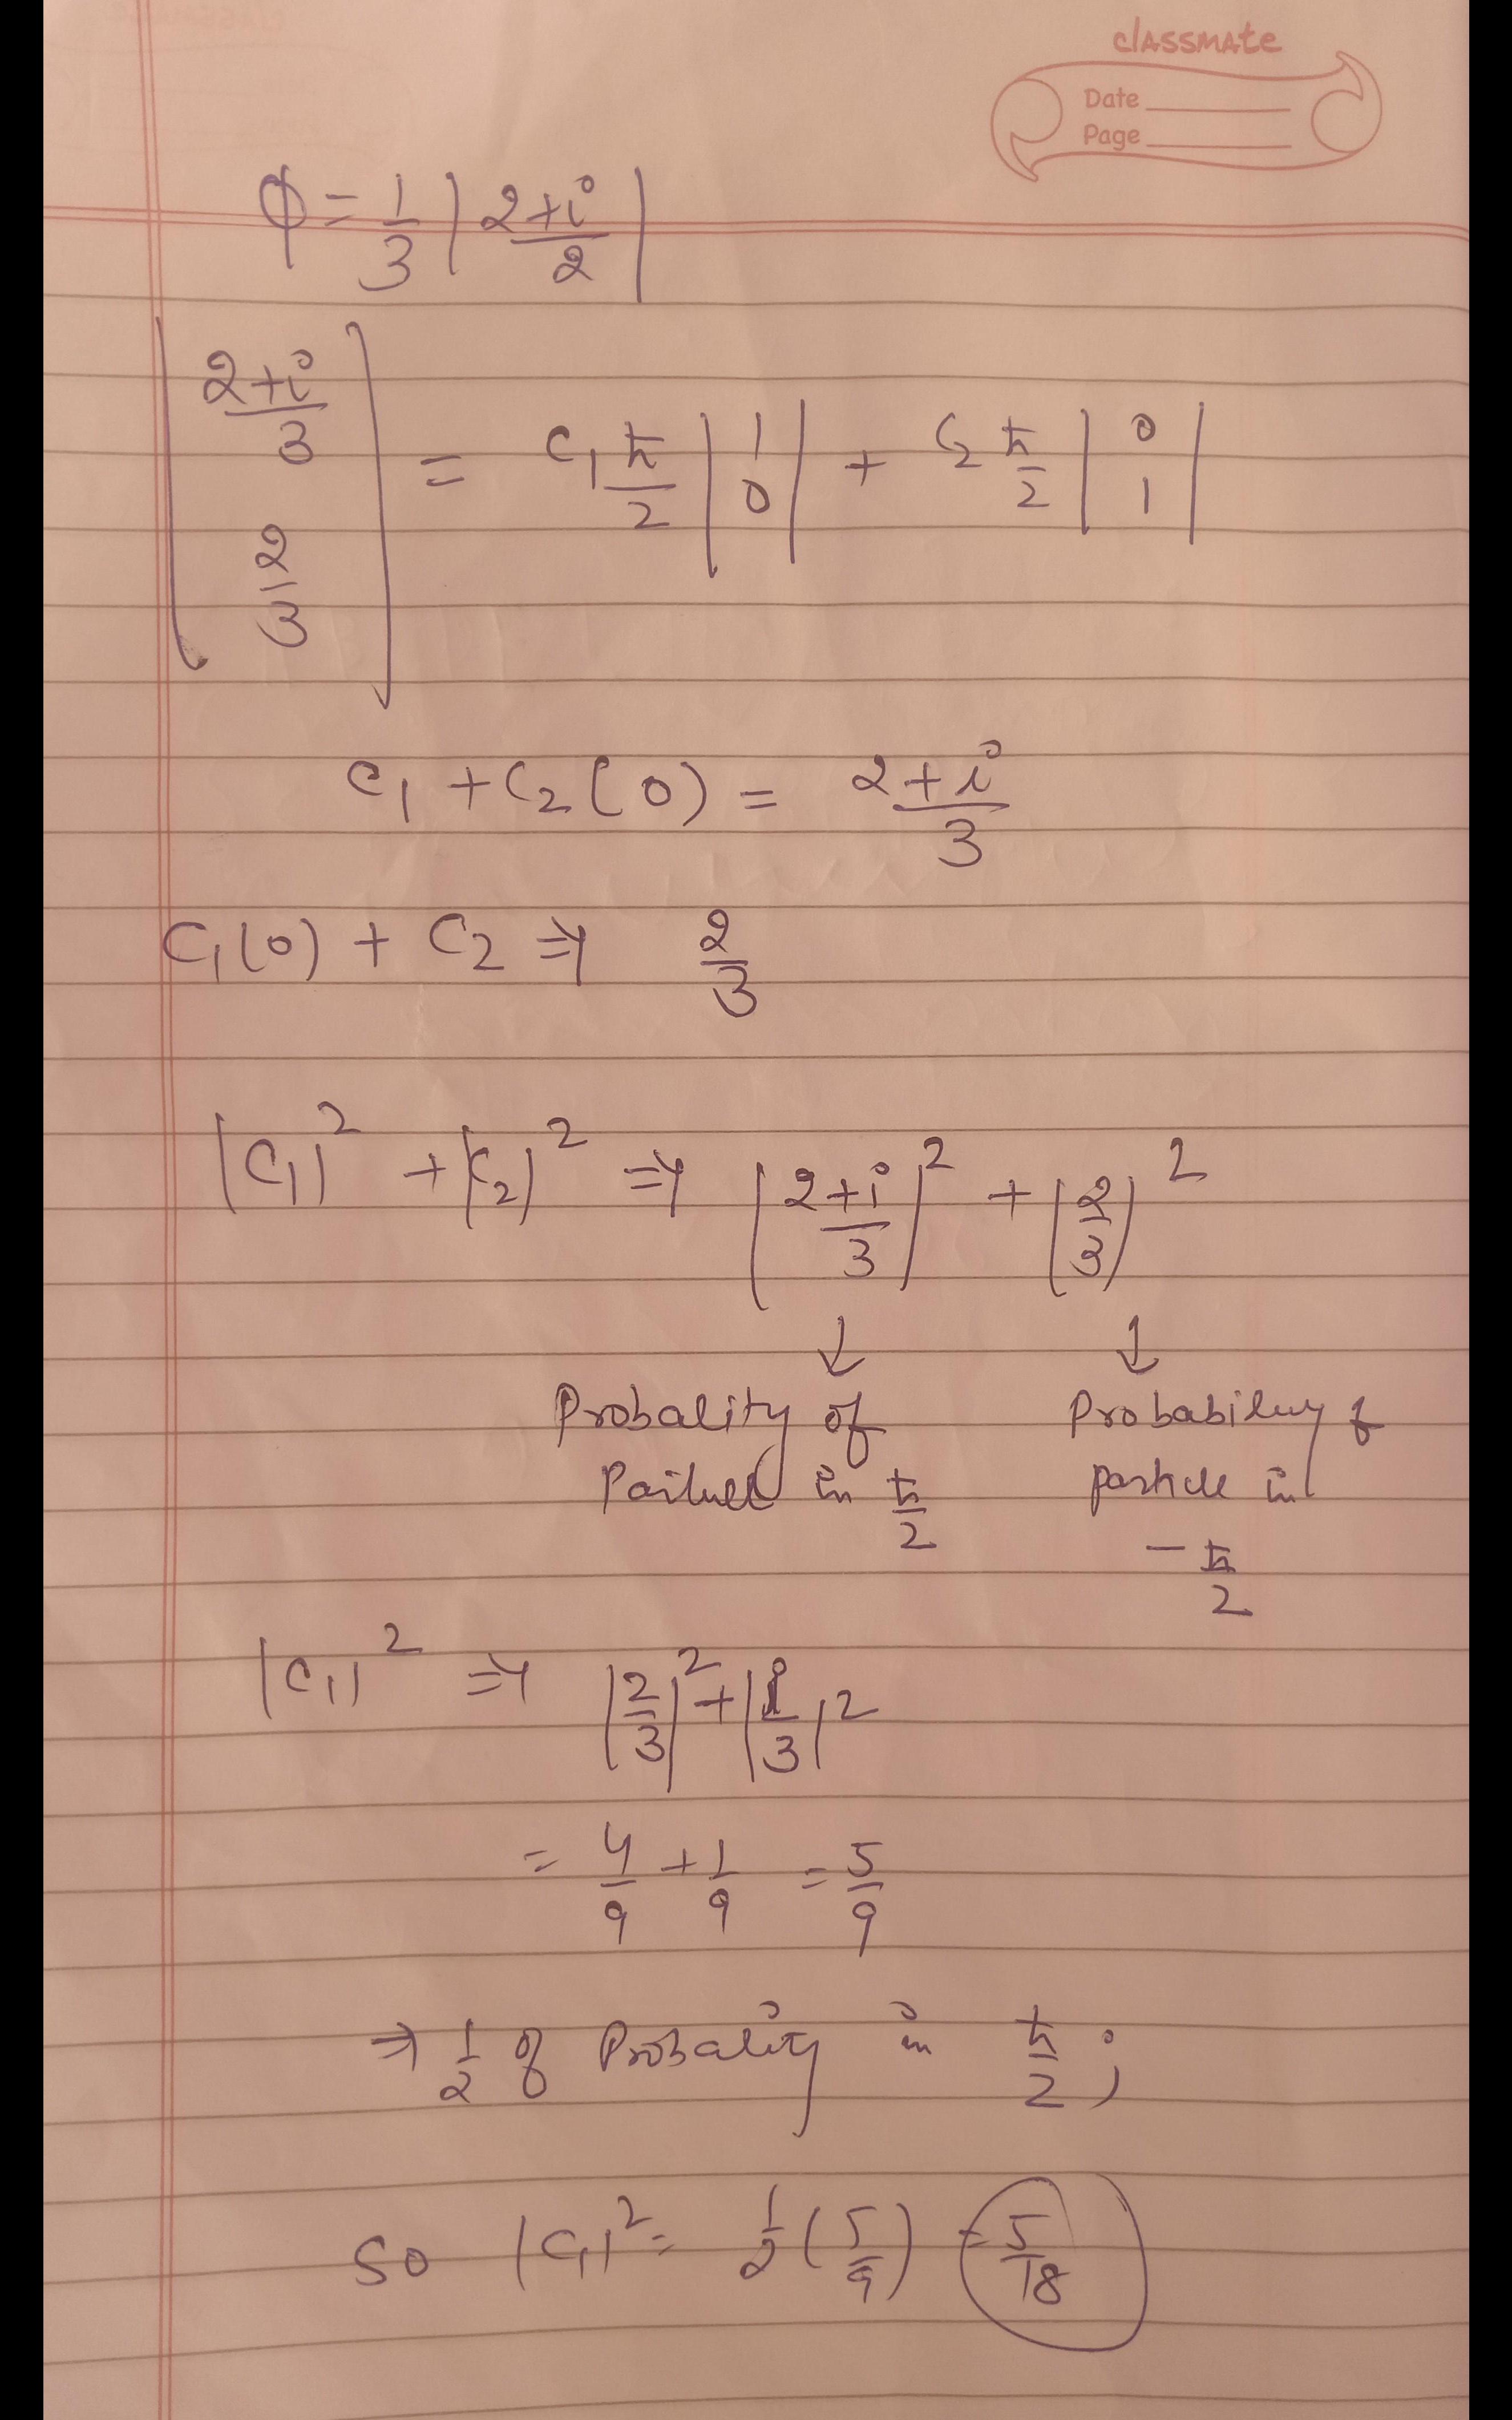 classmate
Date
Page
ϕ = 1/3 | 2+i/2 |
[ 2+i/3 2/3 ] = C1 ħ/2 | 1 0 | + C2 ħ/2 | 0 1 |
C1 + C2 (0) = 2+i/3
C1(0) + C2 ⇒ 2/3
|C1|² + |C2|² ⇒ | 2+i/3 |² + | 2/3 |²
↓ ↓
Probality of Probability of
in ħ/2 particle in
- ħ/2
|C1|² ⇒ | 2/3 |² + | i/3 |²
= 4/9 + 1/9 = 5/9
⇒ 1/2 of Probality in ħ/2 ;
So |C1|² = 1/2 ( 5/9 ) = 5/18